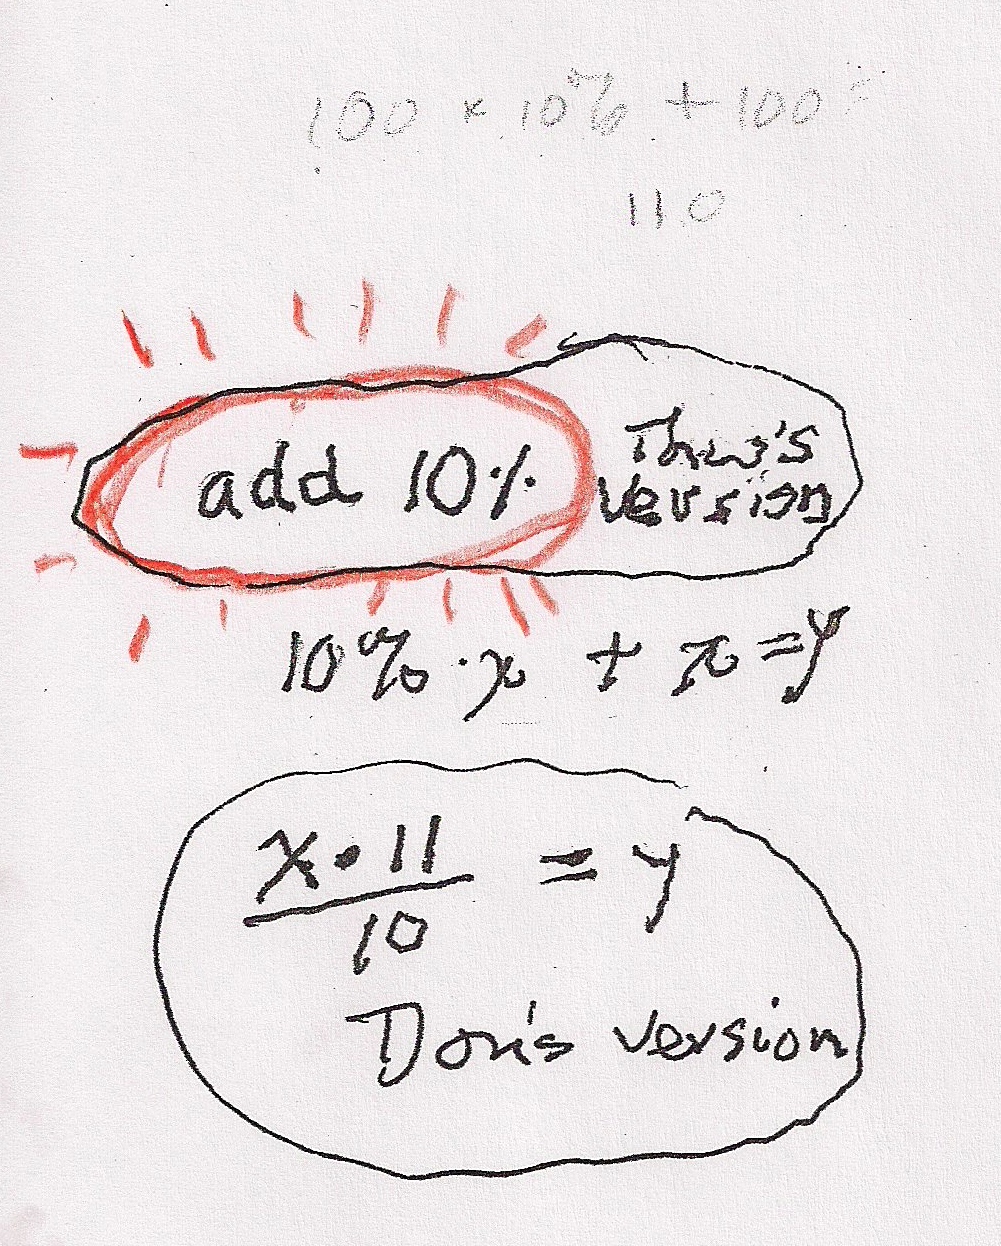 100 x 10% + 100 =
110
add 10%
version
10% · x + x = y
x · 11 = y
10
Don's version